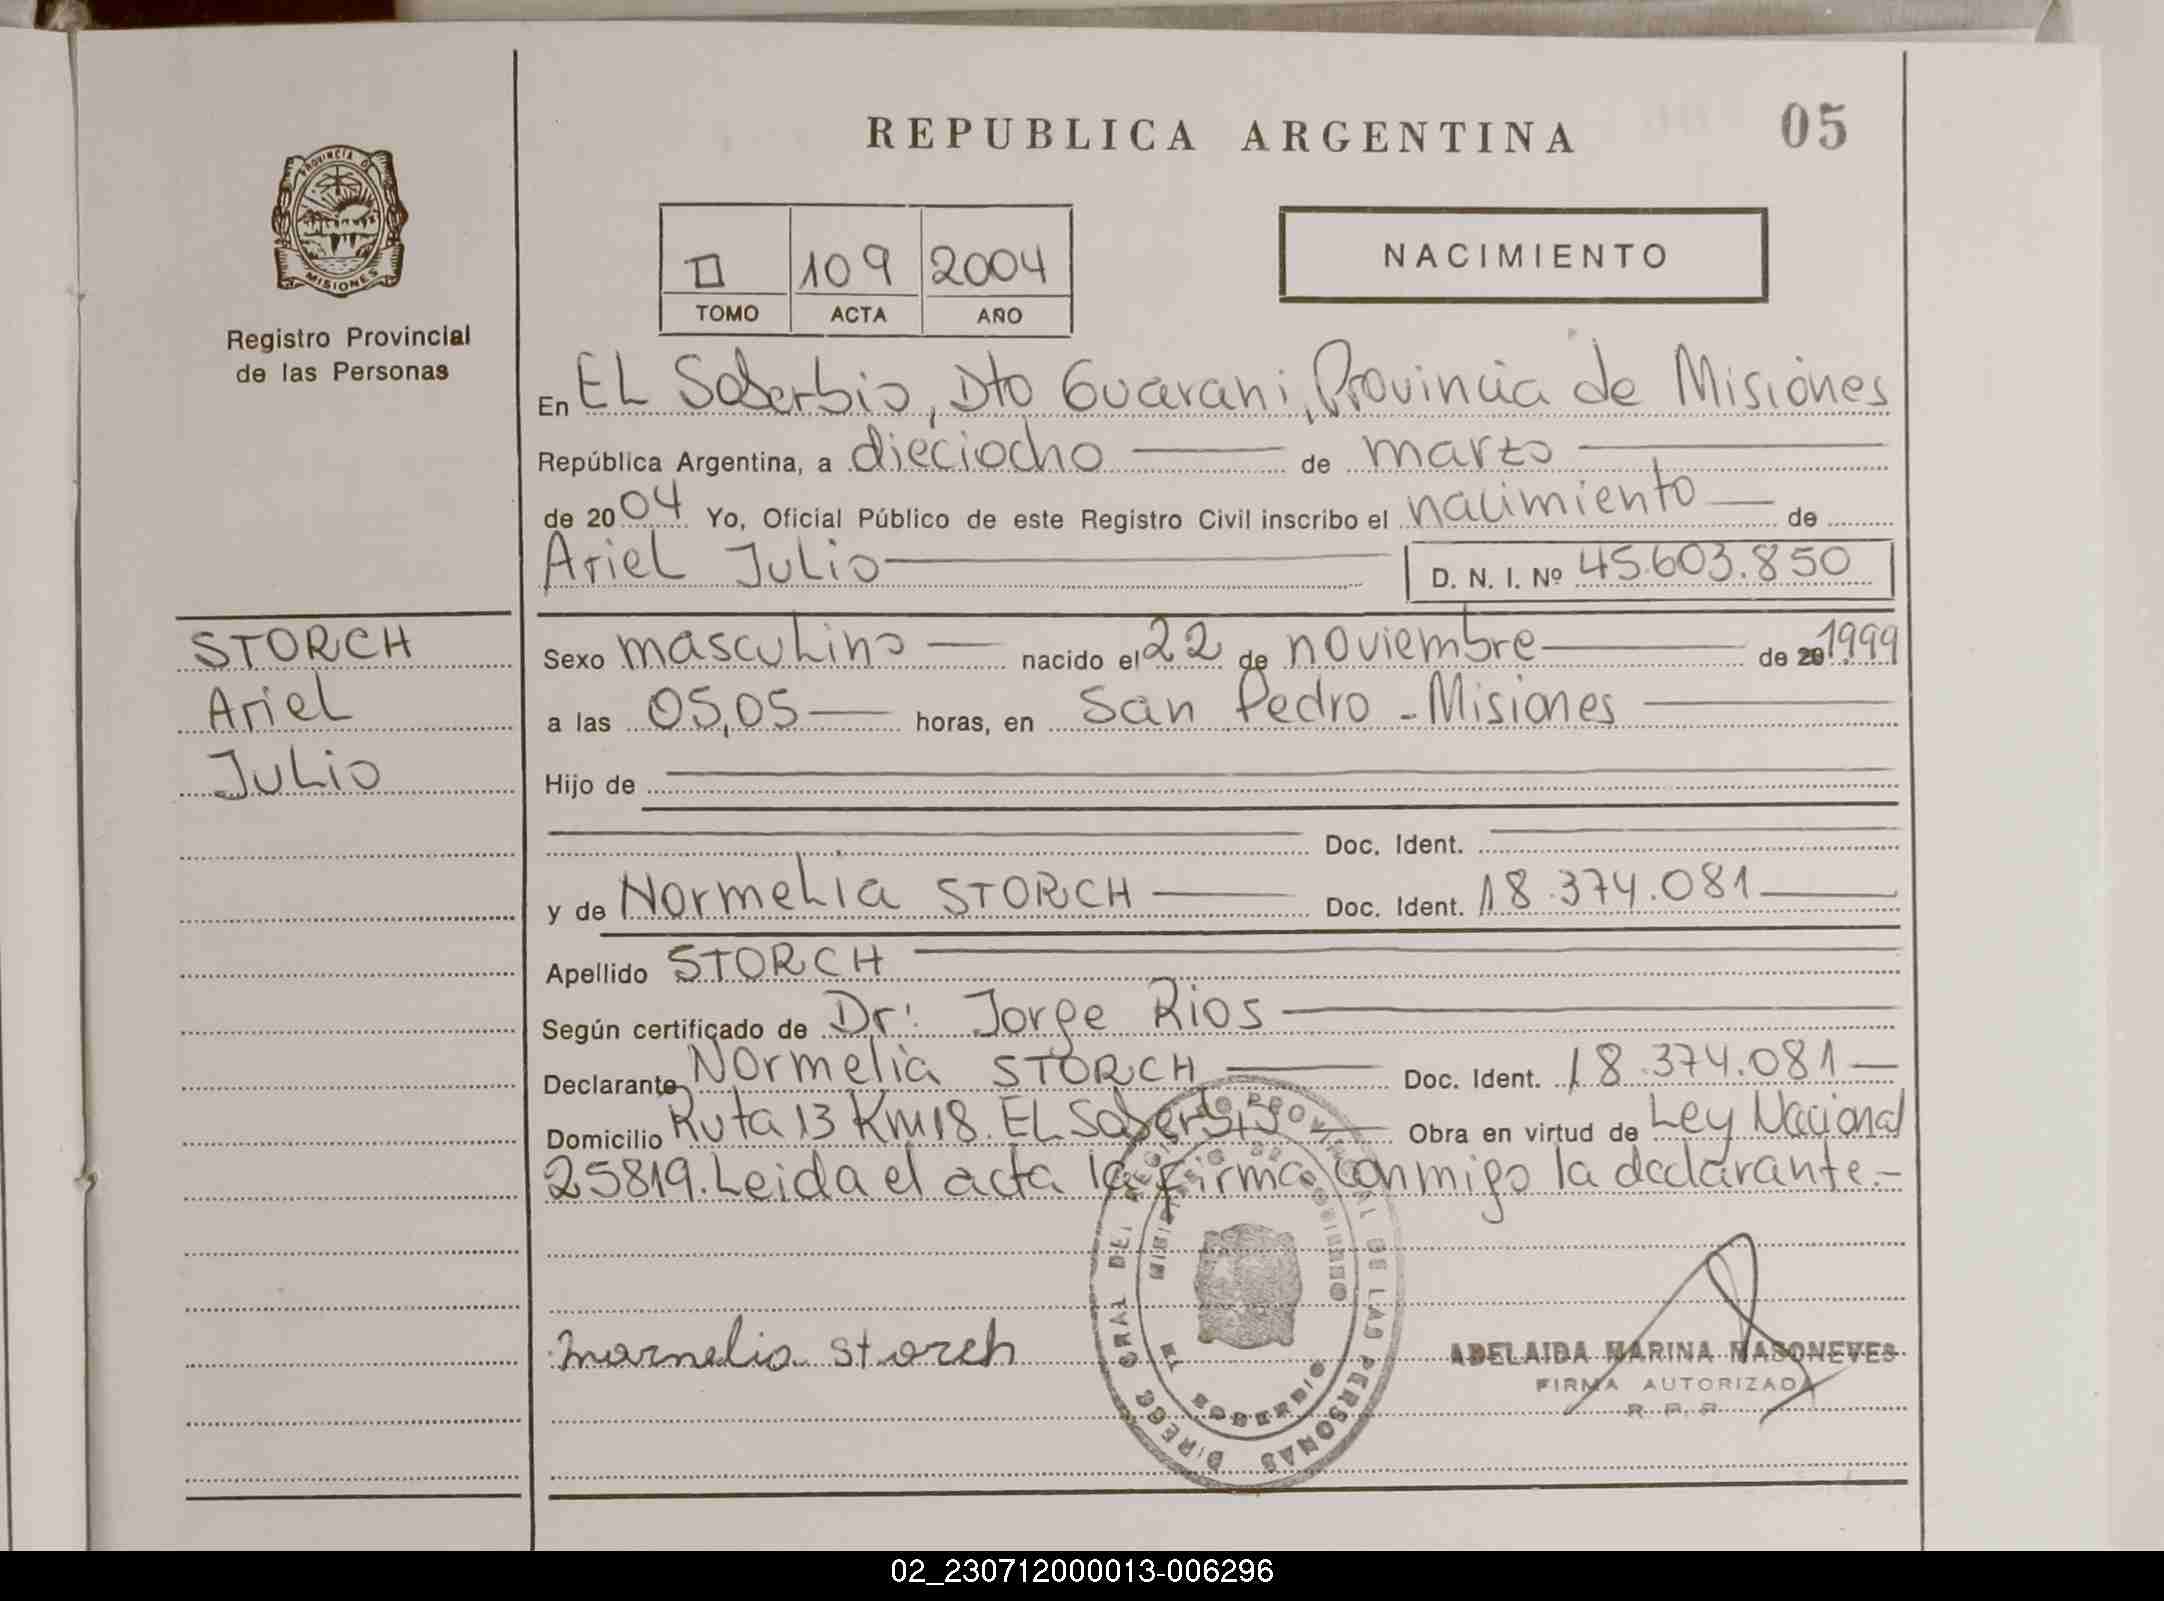 REPUBLICA ARGENTINA
05
PROVINCIA DE
MISIONES
Registro Provincial
de las Personas
II 109 2004
TOMO ACTA AÑO
NACIMIENTO
En EL Soberbio, Dto Guarani, Provincia de Misiones
República Argentina, a dieciocho de marzo
de 2004 Yo, Oficial Público de este Registro Civil inscribo el nacimiento de
Ariel Julio D. N. I. Nº 45.603.850
STORCH
Ariel
Julio
Sexo masculino nacido el 22 de noviembre de 20 1999
a las 05,05 horas, en San Pedro - Misiones
Hijo de
Doc. Ident.
y de Normelia STORCH Doc. Ident. 18.374.081
Apellido STORCH
Según certificado de Dr: Jorge Rios
Declarante Normelia STORCH Doc. Ident. 18.374.081
Domicilio Ruta 13 Km 18. EL Soberbio Obra en virtud de Ley Nacional
25819. Leida el acta la firma conmigo la declarante.-
DIRECC GRAL DEL REGISTRO PROVINCIAL DE LAS PERSONAS
MINISTERIO DE GOBIERNO
EL SOBERBIO
mornelia storch
ADELAIDA MARINA MASONEVES
FIRMA AUTORIZADA
R. P. P.
02_230712000013-006296